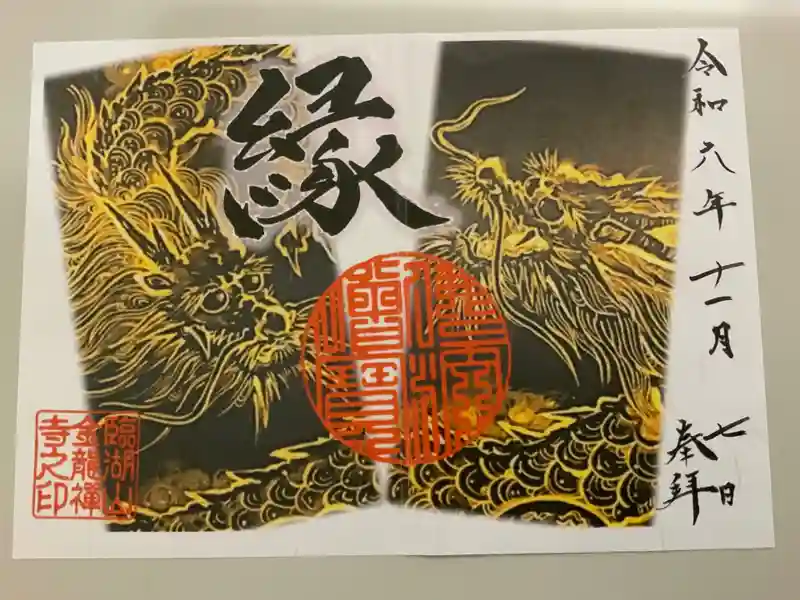 令和六年十一月七日
奉拝
縁
臨湖山
金龍禅
寺之印